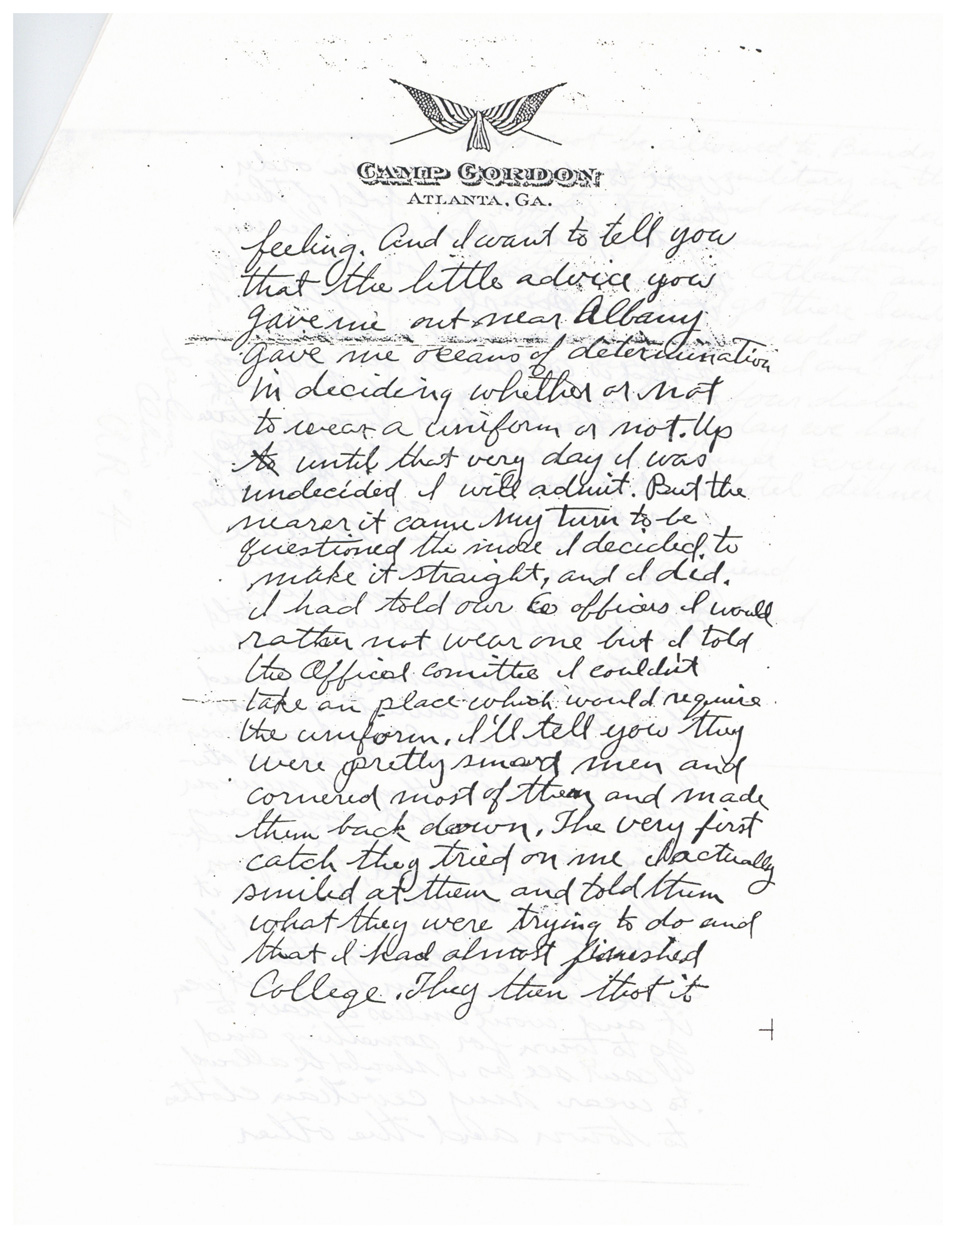 CAMP GORDON
ATLANTA, GA.
feeling. And I want to tell you
that the little advice you
gave me out near Albany
gave me oceans of determination
in deciding whether or not
to wear a uniform or not. Up
until that very day I was
undecided I will admit. But the
nearer it came my turn to be
questioned the more I decided to
make it straight, and I did.
I had told our Co officers I would
rather not wear one but I told
the Officers comittee I couldn't
take an place which would require
the uniform. I'll tell you they
were pretty smart men and
cornered most of them and made
them back down. The very first
catch they tried on me I actually
smiled at them and told them
what they were trying to do and
that I had almost finished
College. They then thot it